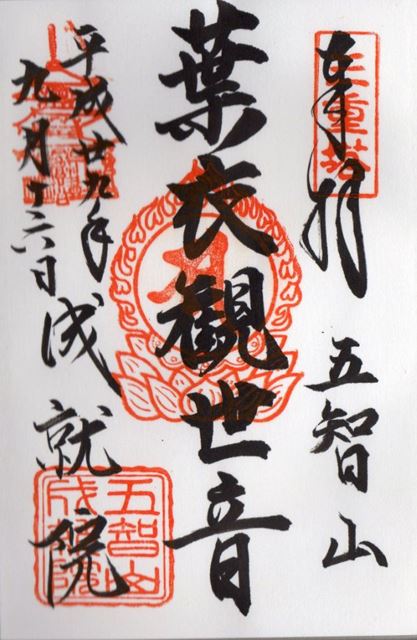 奉拝
三重塔
五智山
葉衣観世音
平成廿九年
九月十六日
成就院
五智山
成就院